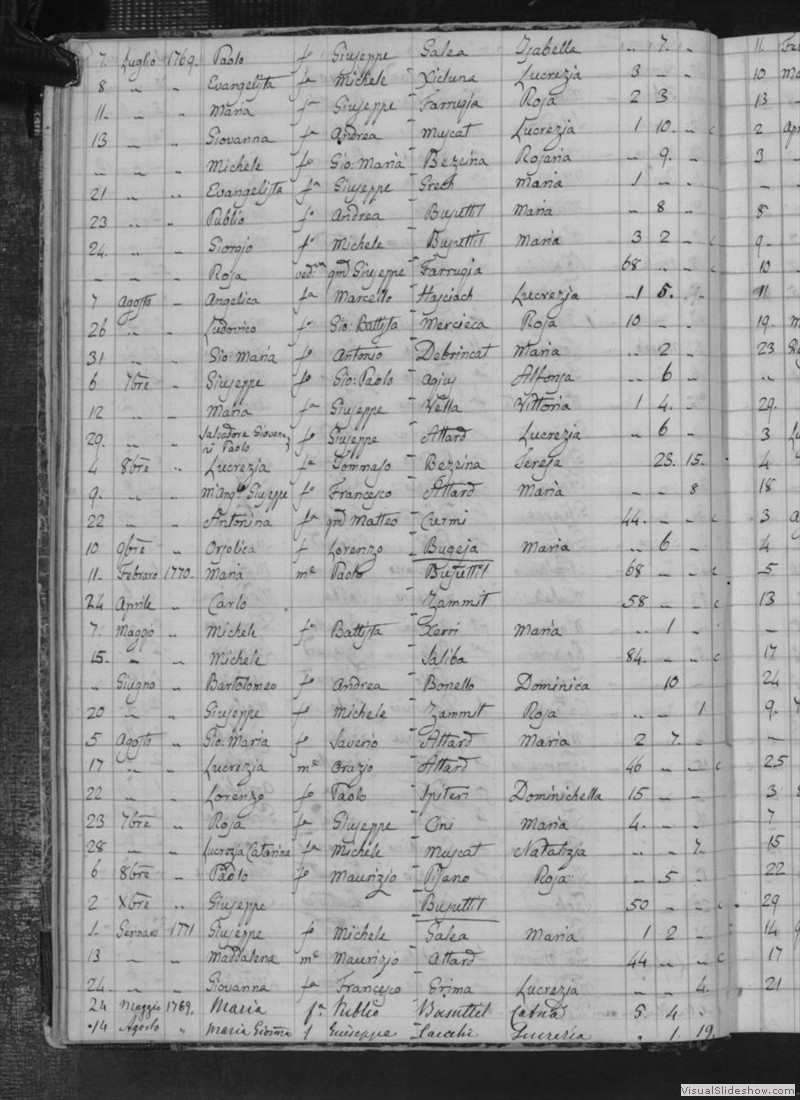 7. Luglio 1769. Paolo fo Giuseppe Galea Isabella .. 7. ..
8 .. .. Evangelista fa Michele Xicluna Lucrezia 3 .. ..
11. .. .. Maria fa Giuseppe Farrugia Rosa 2 3 ..
13 .. .. Giovanna fa Andrea Muscat Lucrezia 1 10. .. c
.. .. .. Michele fo Gio: Maria Bezzina Rosaria .. 9. ..
21 .. .. Evangelista fa Giuseppe Grech Maria 1 .. ..
23 .. .. Publio fo Andrea Busuttil Maria .. 8 ..
24. .. .. Giorgio fo Michele Busuttil Maria 3 2 .. c
.. .. .. Rosa qmd Giuseppe Farrugia 68 .. .. c
7 Agosto .. Angelica fa Marcello Hasciach Lucrezia 1 5. ..
26 .. .. Ludovico fo Gio: Battista Mercieca Rosa 10 .. ..
31 .. .. Gio: Maria fo Antonio Debrincat Maria .. 2 ..
6 7bre .. Giuseppe fo Gio: Paolo Agius Alfonsa .. 6 ..
12 .. .. Maria fa Giuseppe Vella Vittoria 1 4. ..
29. .. .. Salvadore Giovan
ni Paolo fo Giuseppe Attard Lucrezia .. 6 ..
4 8bre .. Lucrezia fa Tommaso Bezzina Teresa 23. 15.
9. .. .. Giuseppe fo Francesco Attard Maria .. .. 8
22 .. .. Antonina fa qmd Matteo Curmi 44. .. .. c
10 9bre .. Orsolica f Lorenzo Bugeja Maria .. 6 ..
11. Febraro 1770. Maria me Paolo Busuttil 68 .. .. c
24 Aprile .. Carlo Zammit 58 .. .. c
7. Maggio .. Michele fo Battista Xerri Maria .. 1 ..
15. .. .. Michele Saliba 84. .. .. c
.. Giugno .. Bartolomeo fo Andrea Bonello Dominica 10 ..
20 .. .. Giuseppe fo Michele Zammit Rosa .. .. 1
5 Agosto .. Gio: Maria fo Saverio Attard Maria 2 7. ..
17 .. .. Lucrezia me Orazio Attard 46 .. .. c
22 .. .. Lorenzo fo Paolo Spiteri Dominichella 15 .. ..
23 7bre .. Rosa fa Giuseppe Cini Maria 4. .. ..
28 .. .. Lucrezia Catarina fa Michele Muscat Natalizia .. .. 7.
6 8bre .. Paolo fo Maurizio Pisano Rosa .. 5 ..
2 Xbre .. Giuseppe Busuttil 50 .. .. c
1. Gennaro 1771. Giuseppe fo Michele Galea Maria 1 2 ..
13 .. .. Maddalena me Maurizio Attard 44 .. .. c
24. .. .. Giovanna fa Francesco Lucrezia .. .. 4.
24 Maggio 1769. Maria fa Publio Busuttil 5. 4 ..
14 Agosto .. Maria f Giuseppe Lucrezia .. 1. 19.
11.
10
13
2
3
..
8
9.
10
11
19.
23
..
29.
3
4
18
3
4
5
13
..
17
24
9.
..
25
3
7
15
22
29
14
17
21
VisualSlideshow.com